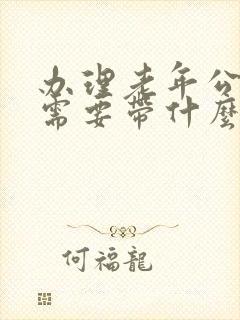 办理老年公
需要带什麽
何福龍